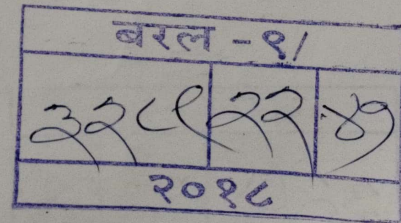 बरल - ९/
३२८९ २२ ४७
२०१८